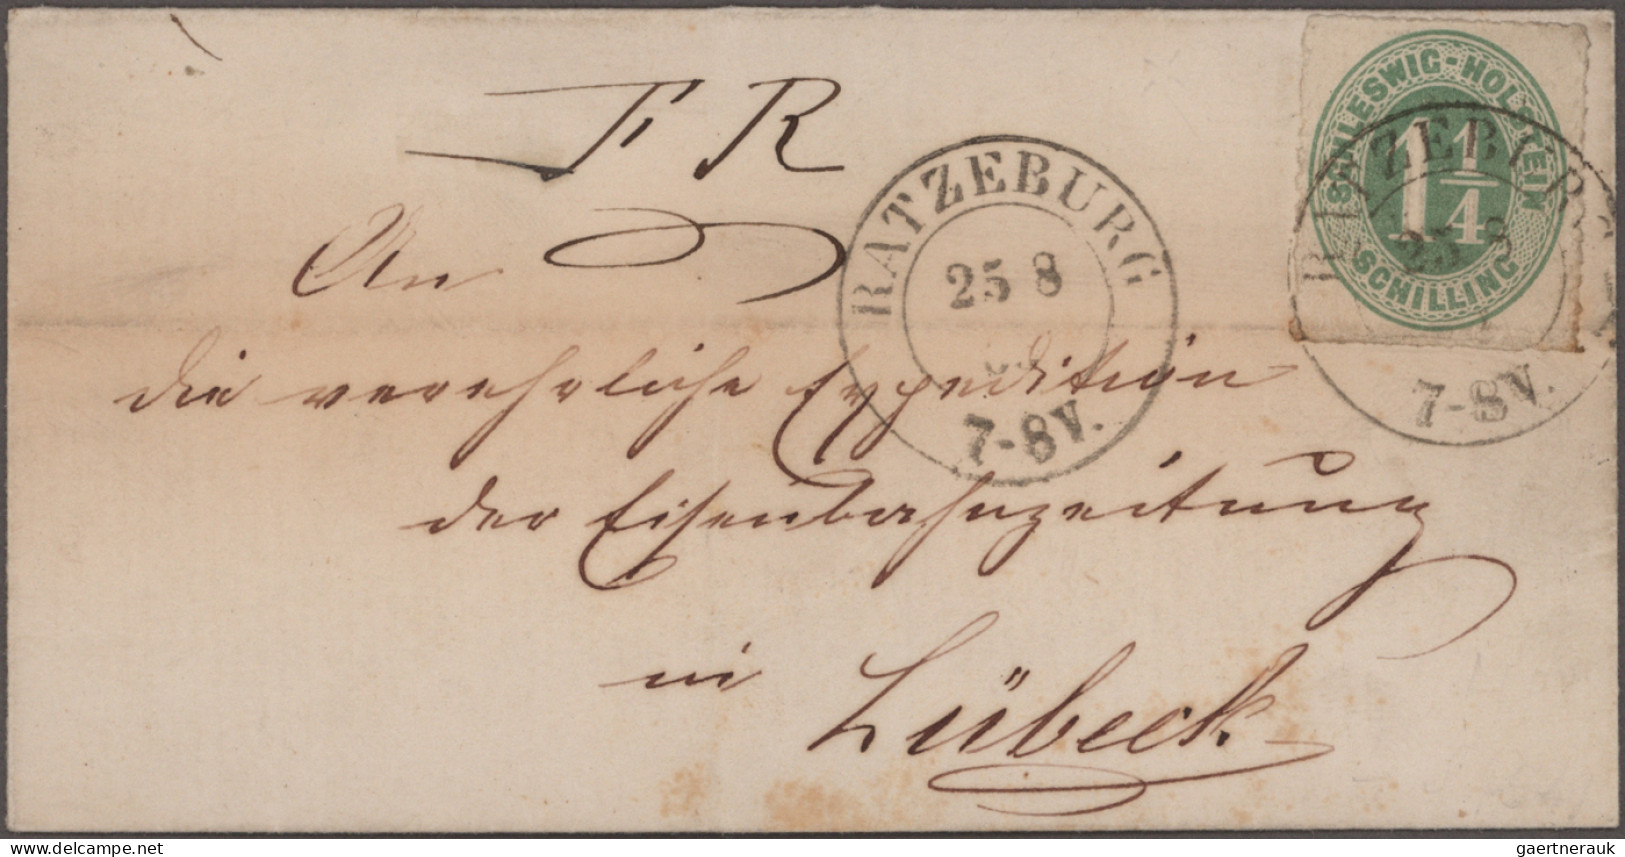 F R
SCHLESWIG-HOLSTEIN
1 1/4
SCHILLING
RATZEBURG
25 8
7-8V.
RATZEBURG
25 8
7-8V.
An
die verehrliche Expedition
der Eisenbahnzeitung
in
Lübeck.
delcampe.net
gaertnerauk